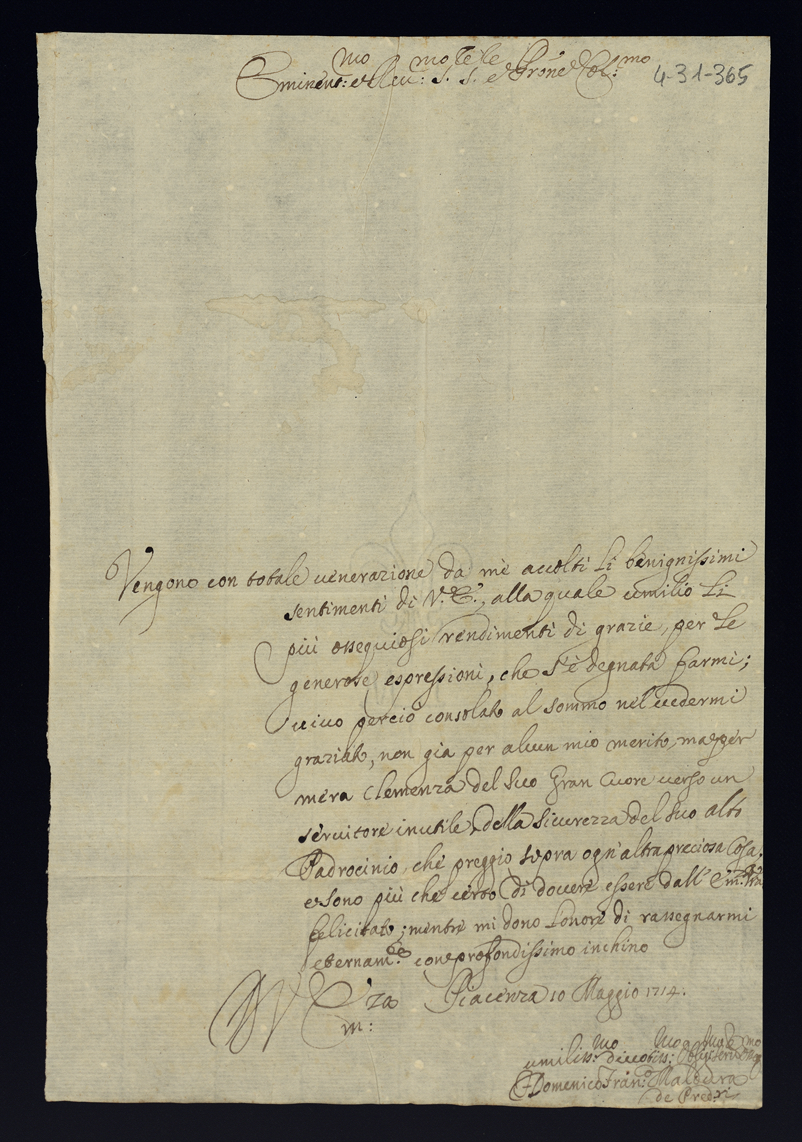 Eminent:mo e Reu:mo S.re S.re e Prone Col:mo 4-31-365
Vengono con totale uenerazione da mè accolti li benignissimi
sentimenti di V. E:, alla quale umilio li
più ossequiosi rendimenti di grazie, per le
generose espressioni, che s'è degnata farmi;
uiuo perciò consolato al sommo nel uedermi
graziato, non gia per alcun mio merito, ma per
mera Clemenza del suo Gran Cuore uerso un
seruitore inutile, della sicurezza del suo alto
Padrocinio, che preggio sopra ogn'altra preciosa Cosa,
e sono più che certo di douere essere dall'
felicitato; mentre mi dono l'onore di rassegnarmi
eternam:te con profondissimo inchino
V E:za Piacenza 10 Maggio 1714.
m:
umiliss:mo diuotiss:mo
Domenico Fran:o Maldura
de